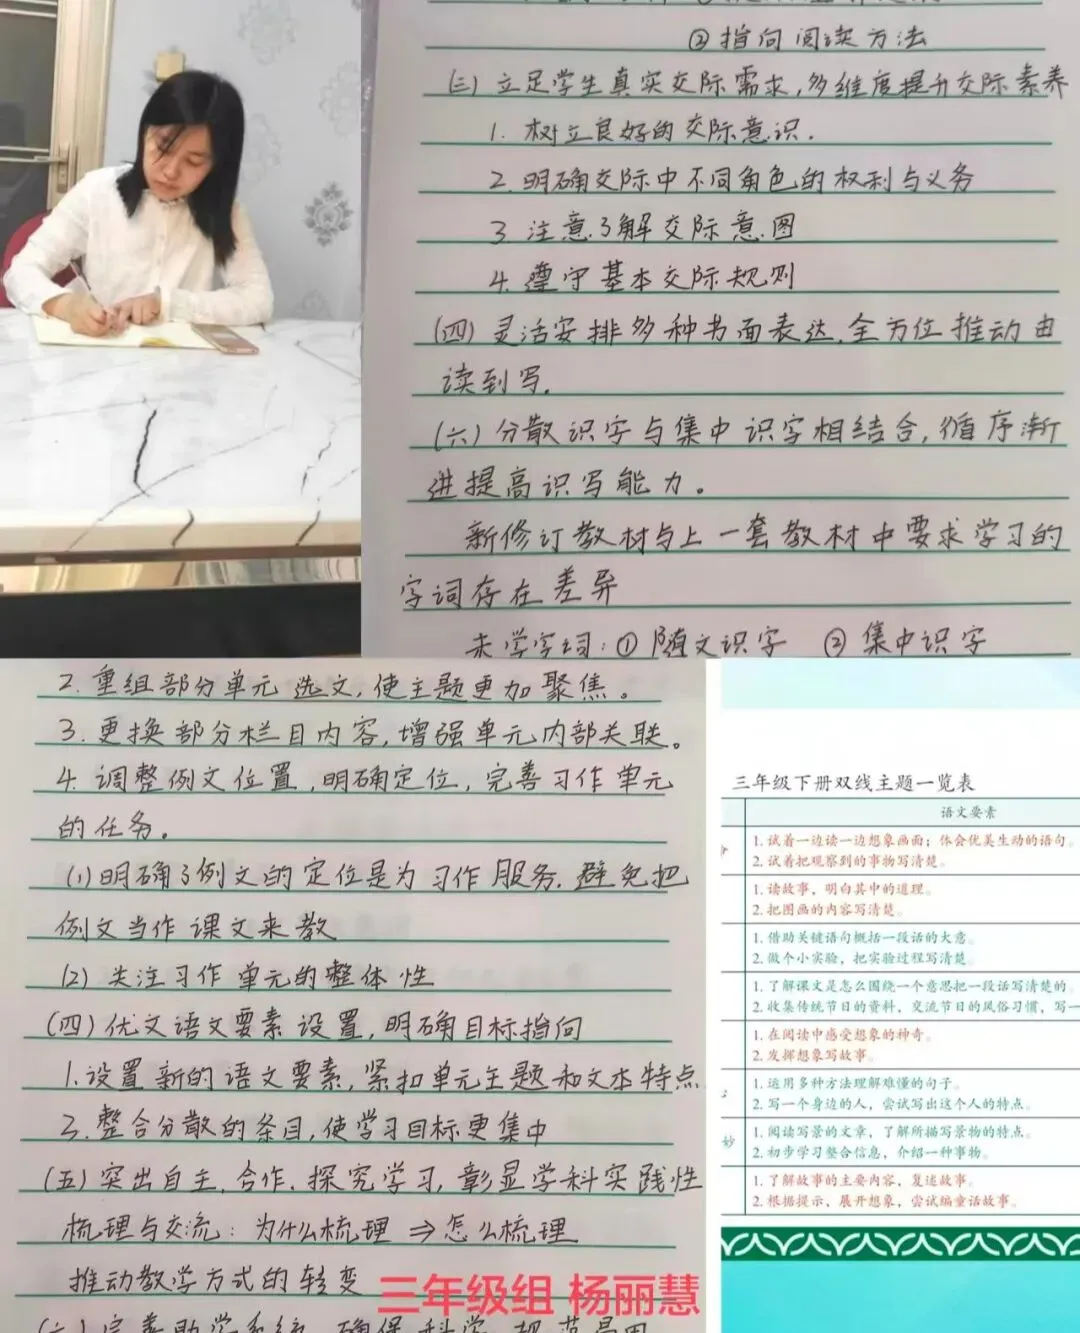 ②指向阅读方法
(三)立足学生真实交际需求,多维度提升交际素养
1.树立良好的交际意识.
2.明确交际中不同角色的权利与义务
3.注意了解交际意图
4.遵守基本交际规则
(四)灵活安排多种书面表达.全方位推动由
读到写.
(六)分散识字与集中识字相结合,循序渐
进提高识写能力。
新修订教材与上一套教材中要求学习的
字词存在差异
未学字词:①随文识字 ②集中识字
2.重组部分单元选文,使主题更加聚焦。
3.更换部分栏目内容,增强单元内部关联。
4.调整例文位置,明确定位,完善习作单元
的任务。
(1)明确了例文的定位是为习作服务.避免把
例文当作课文来教
(2)关注习作单元的整体性
(四)优文语文要素设置,明确目标指向
1.设置新的语文要素,紧扣单元主题和文本特点
3.整合分散的条目,使学习目标更集中
(五)突出自主.合作.探究学习,彰显学科实践性
梳理与交流:为什么梳理⇒怎么梳理
推动教学方式的转变
三年级下册双线主题一览表
语文要素
1.试着一边读一边想象画面;体会优美生动的语句。
2.试着把观察到的事物写清楚。
1.读故事,明白其中的道理。
2.把图画的内容写清楚。
1.借助关键语句概括一段话的大意。
2.做个小实验,把实验过程写清楚。
1.了解课文是怎么围绕一个意思把一段话写清楚的。
2.收集传统节日的资料,交流节日的风俗习惯,写一
1.在阅读中感受想象的神奇。
2.发挥想象写故事。
1.运用多种方法理解难懂的句子。
2.写一个身边的人,尝试写出这个人的特点。
妙
1.阅读写景的文章,了解所描写景物的特点。
2.初步学习整合信息,介绍一种事物。
1.了解故事的主要内容,复述故事。
2.根据提示,展开想象,尝试编童话故事。
三年级组 杨丽慧